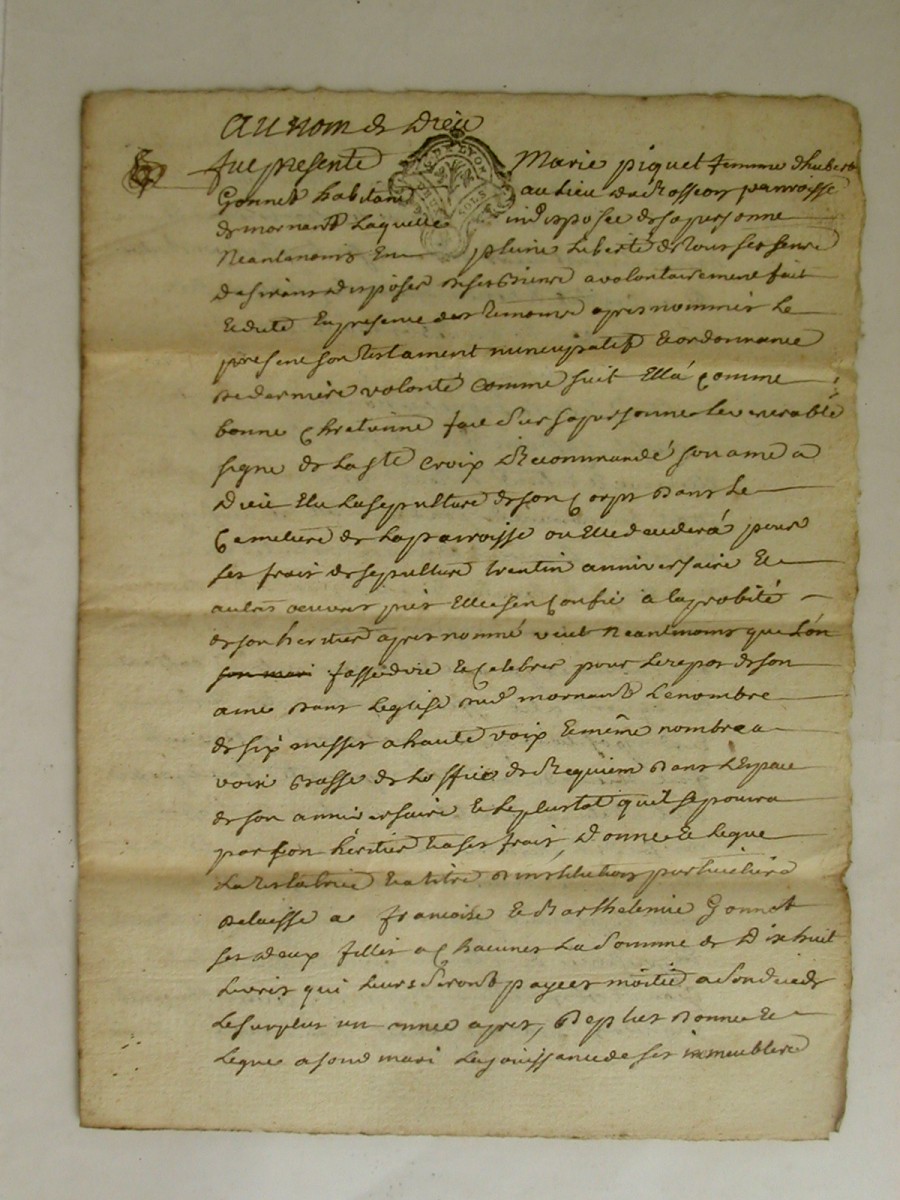 au nom de Dieu
fut presente Marie piquet femme dhubert
Gonnet habitant au lieu de Rosseon parroisse
de mornant Laquelle indisposée de sa personne
Neantmoins En pleine Liberté de tous ses sens
desirant disposer de ses Biens a volontairement fait
Et dicté En presence des temoins apres nommés Le
present son testament nuncupatif Et ordonnance
de derniere volonté comme suit Ellá comme
bonne Chretienne fait sur sa personne le venerable
signe de La ste Croix Recommandé son ame a
Dieu Elu La sepulture de son Corps dans Le
Cemetiere de La parroisse ou Elle decedera pour
ses frais de sepulture trentin anniversaire Et
autres oeuvres pies Elle s'en Confie a la probité
de son heritier apres nommé veut Neantmoins que L'on
son mari fasse dire Et Celebrer pour Le repos de son
ame dans L'eglise dud mornant Le nombre
de six messes a haute voix Et même nombre a
voix Basse de L'office de Requiem dans L'Espace
de son anniversaire Et Le plustot qu'il se pourra
par son héritier Et a ses frais Donne Et Legue
La testatrice Et a titre d'institution particuliere
delaisse a francoise Et Barthelemie Gonnet
ses deux filles a Chacunes La Somme de Dix huit
Livres qui Leurs seront payées moitié a son deces
Le surplus un année apres, De plus Donne Et
Legue a sond mari La jouissance de ses immeubles